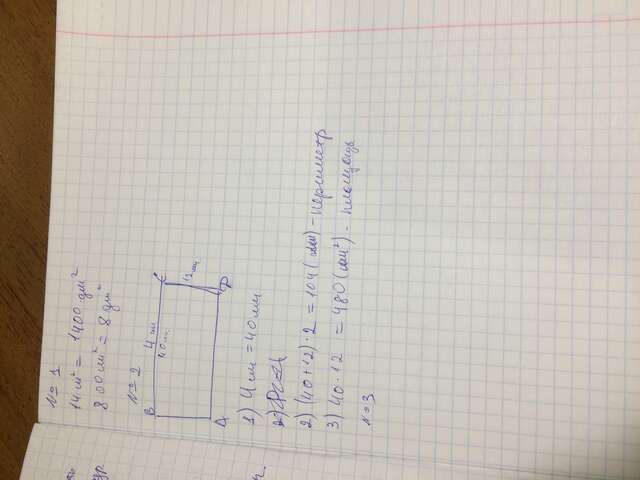 № 1
14 м² = 1400 дм²
800 см² = 8 дм²
№ 2
B 4 см C
40 мм
12 мм
A D
1) 4 см = 40 мм
2) (40 + 12) · 2 = 104 (мм) - периметр
3) 40 · 12 = 480 (мм²) - площадь
№ 3